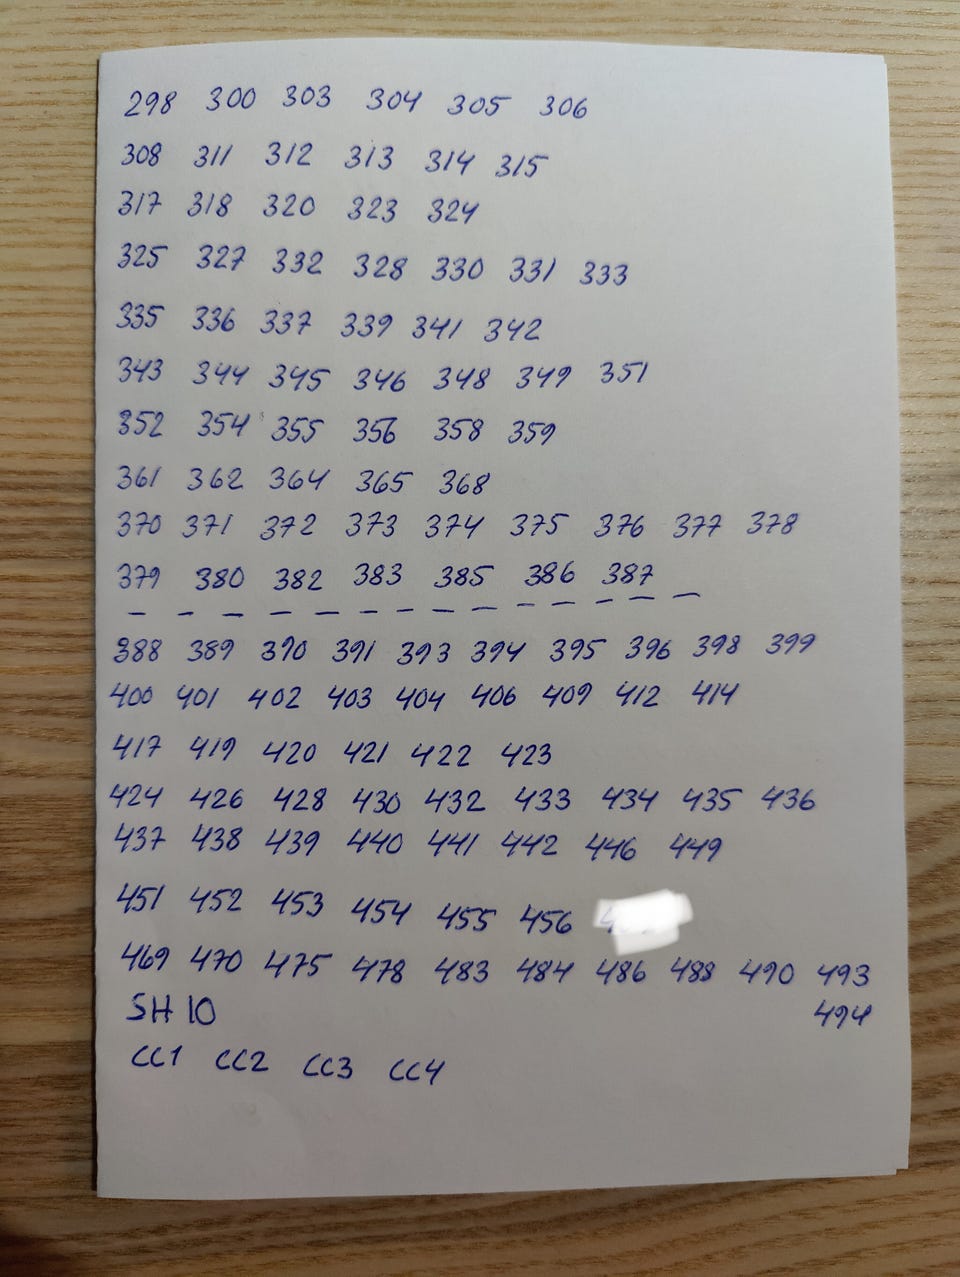 298 300 303 304 305 306
308 311 312 313 314 315
317 318 320 323 324
325 327 332 328 330 331 333
335 336 337 339 341 342
343 344 345 346 348 349 351
352 354 355 356 358 359
361 362 364 365 368
370 371 372 373 374 375 376 377 378
379 380 382 383 385 386 387
388 389 390 391 393 394 395 396 398 399
400 401 402 403 404 406 409 412 414
417 419 420 421 422 423
424 426 428 430 432 433 434 435 436
437 438 439 440 441 442 446 449
451 452 453 454 455 456
469 470 475 478 483 484 486 488 490 493
494
SH 10
CC1 CC2 CC3 CC4